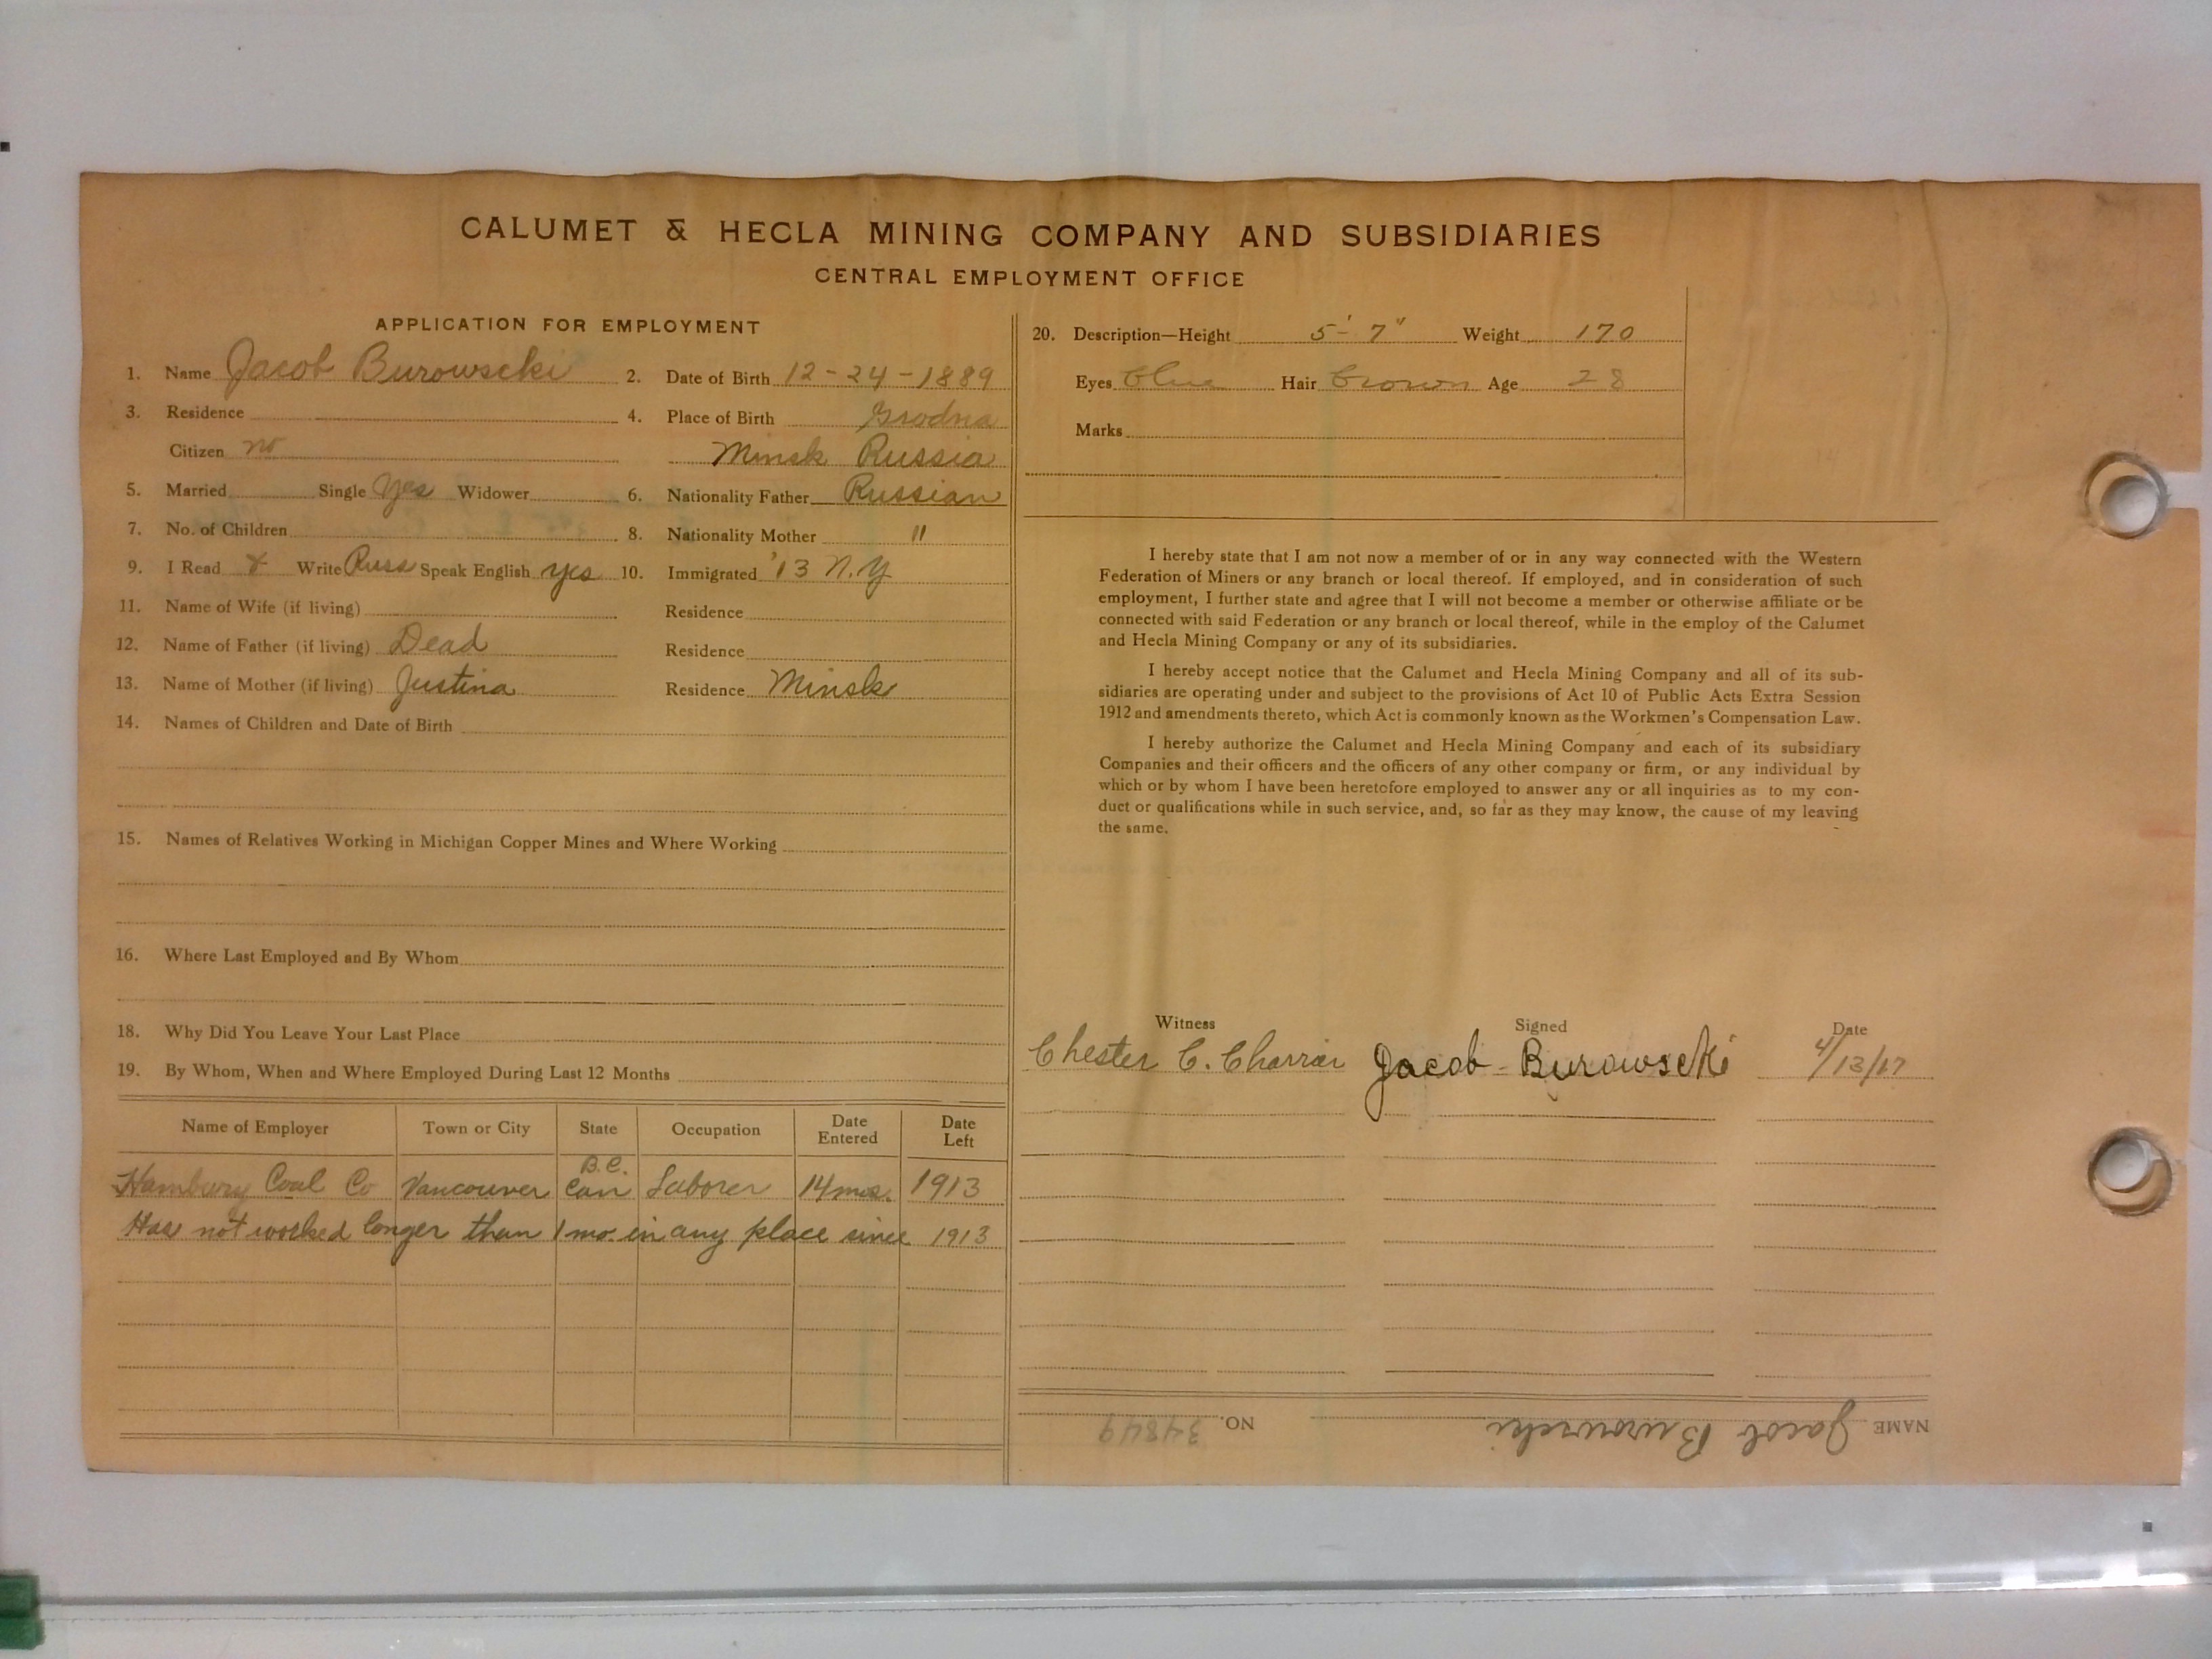 CALUMET & HECLA MINING COMPANY AND SUBSIDIARIES
CENTRAL EMPLOYMENT OFFICE
APPLICATION FOR EMPLOYMENT
1. Name Jacob Burowscki 2. Date of Birth 12-24-1889
3. Residence 4. Place of Birth Grodna
Citizen no Minsk Russia
5. Married Single Yes Widower 6. Nationality Father Russian
7. No. of Children 8. Nationality Mother "
9. I Read & Write Russ Speak English yes 10. Immigrated '13 N.Y
11. Name of Wife (if living) Residence
12. Name of Father (if living) Dead Residence
13. Name of Mother (if living) Justina Residence Minsk
14. Names of Children and Date of Birth
15. Names of Relatives Working in Michigan Copper Mines and Where Working
16. Where Last Employed and By Whom
18. Why Did You Leave Your Last Place
19. By Whom, When and Where Employed During Last 12 Months
Name of Employer Town or City State Occupation Date Entered Date Left
Hambury Coal Co Vancouver B.C. Can Laborer 14 mos. 1913
Has not worked longer than 1 mo. in any place since 1913
20. Description—Height 5'-7" Weight 170
Eyes Blue Hair Brown Age 28
Marks
I hereby state that I am not now a member of or in any way connected with the Western
Federation of Miners or any branch or local thereof. If employed, and in consideration of such
employment, I further state and agree that I will not become a member or otherwise affiliate or be
connected with said Federation or any branch or local thereof, while in the employ of the Calumet
and Hecla Mining Company or any of its subsidiaries.
I hereby accept notice that the Calumet and Hecla Mining Company and all of its sub-
sidiaries are operating under and subject to the provisions of Act 10 of Public Acts Extra Session
1912 and amendments thereto, which Act is commonly known as the Workmen's Compensation Law.
I hereby authorize the Calumet and Hecla Mining Company and each of its subsidiary
Companies and their officers and the officers of any other company or firm, or any individual by
which or by whom I have been heretofore employed to answer any or all inquiries as to my con-
duct or qualifications while in such service, and, so far as they may know, the cause of my leaving
the same.
Witness Signed Date
Chester C. Charrier Jacob Burowscki 4/13/17
NAME Jacob Burowscki NO. 34849